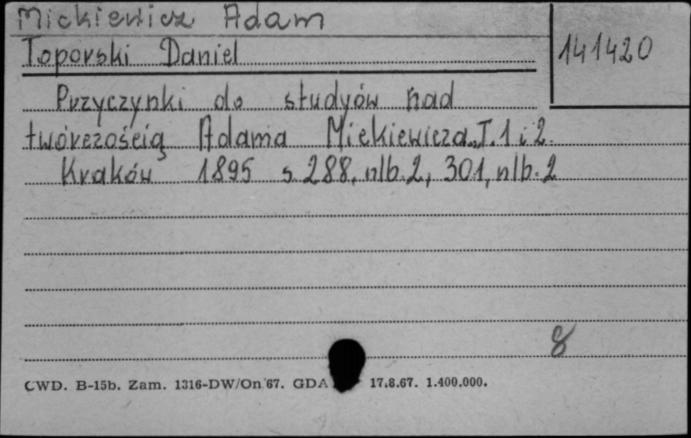 Mickiewicz Adam
Toporski Daniel
141420
Przyczynki do studyów nad
twórczością Adama Mickiewicza. T. 1 i 2.
Kraków 1895 s. 288, nlb. 2, 301, nlb. 2
8
CWD. B-15b. Zam. 1316-DW/On 67. GDA 17.8.67. 1.400.000.